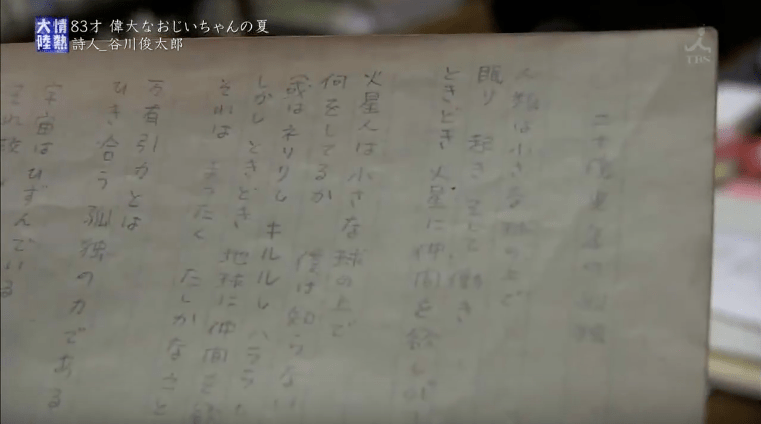 情熱大陸
83才 偉大なおじいちゃんの夏
詩人_谷川俊太郎
TBS
二十億光年の孤独
人類は小さな球の上で
眠り 起き そして働き
ときどき 火星に仲間を欲しが
火星人は小さな球の上で
何をしてるか 僕は知らない
(或は ネリリし キルルし ハララし
しかし ときどき 地球に仲間を
それは まったく たしかなこと
万有引力とは
ひき合う 孤独の力である
宇宙はひずんでいる
それ故